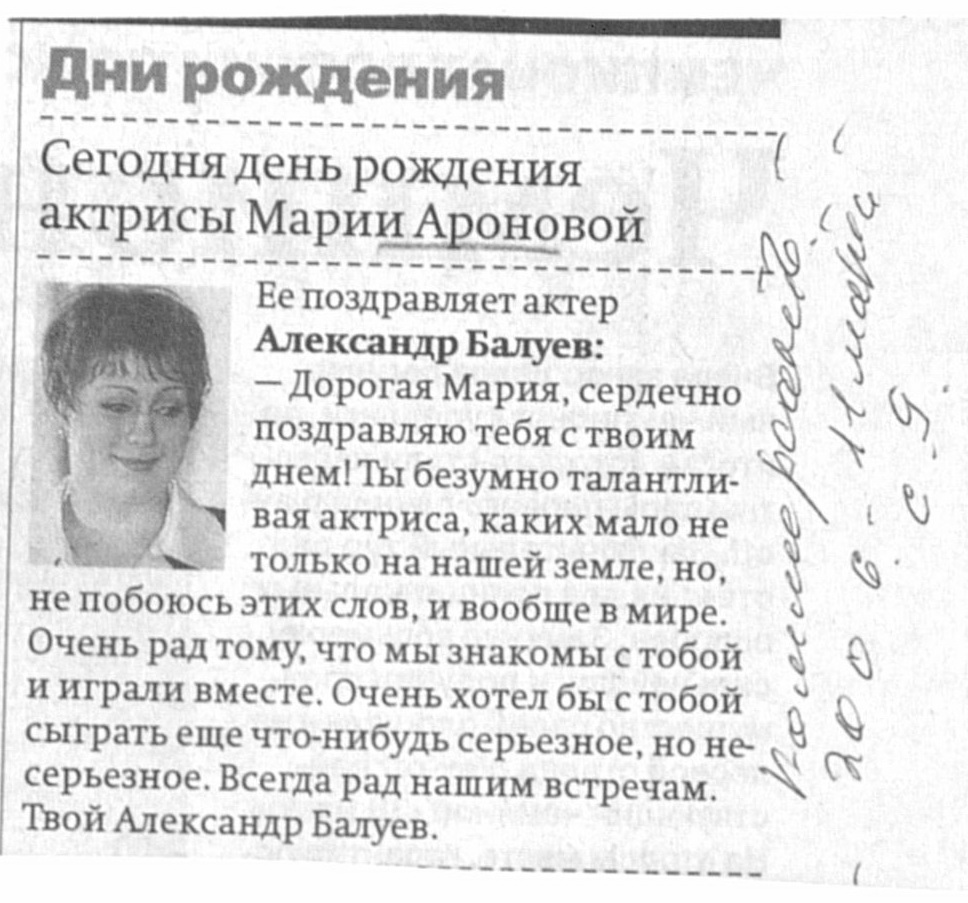 Дни рождения
Сегодня день рождения
актрисы Марии Ароновой
Ее поздравляет актер
Александр Балуев:
— Дорогая Мария, сердечно
поздравляю тебя с твоим
днем! Ты безумно талантли-
вая актриса, каких мало не
только на нашей земле, но,
не побоюсь этих слов, и вообще в мире.
Очень рад тому, что мы знакомы с тобой
и играли вместе. Очень хотел бы с тобой
сыграть еще что-нибудь серьезное, но не-
серьезное. Всегда рад нашим встречам.
Твой Александр Балуев.
2006 - 11 марта -
с-9.